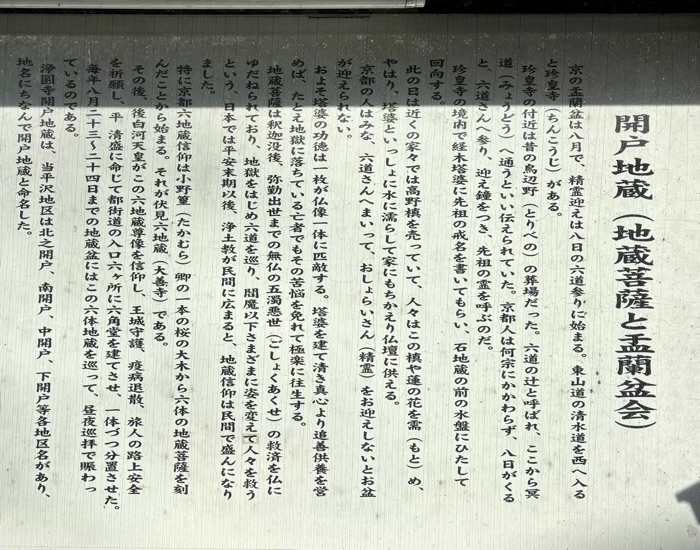 開戸地蔵（地蔵菩薩と盂蘭盆会）
京の盂蘭盆は八月で、精霊迎えは八日の六道参りに始まる。東山道の清水道を西へ入る
と珍皇寺（ちんこうじ）がある。
珍皇寺の付近は昔の鳥辺野（とりべの）の葬場だった。六道の辻と呼ばれ、ここから冥
道（みょうどう）へ通うといい伝えられていた。京都人は何宗にかかわらず、八日がくる
と、六道さんへ参り、迎え鐘をつき、先祖の霊を呼ぶのだ。
珍皇寺の境内で経木塔婆に先祖の戒名を書いてもらい、石地蔵の前の水盤にひたして
回向する。
此の日は近くの家々では高野槙を売っていて、人々はこの槙や蓮の花を需（もと）め、
やはり、塔婆といっしょに水に濡らして家にもちかえり仏壇に供える。
京都の人はみな、六道さんへまいって、おしょらいさん（精霊）をお迎えしないとお盆
が迎えられない。
およそ塔婆の功徳は一枚が仏像一体に匹敵する。塔婆を建て清き真心より追善供養を営
めば、たとえ地獄に落ちている亡者でもその苦悩を免れて極楽に往生する。
地蔵菩薩は釈迦没後、弥勒出世までの無仏の五濁悪世（ごしょくあくせ）の救済を仏に
ゆだねられており、地獄をはじめ六道を巡り、閻魔以下さまざまに姿を変えて人々を救う
という、日本では平安末期以後、浄土教が民間に広まると、地蔵信仰は民間で盛んになり
ました。
特に京都六地蔵信仰は小野篁（たかむら）卿の一本の桜の大木から六体の地蔵菩薩を刻
んだことから始まる。それが伏見六地蔵（大善寺）である。
その後、後白河天皇がこの六地蔵尊像を信仰し、王城守護、疫病退散、旅人の路上安全
を祈願し、平 清盛に命じて都街道の入口六ヶ所に六角堂を建てさせ、一体づつ分置させた。
毎年八月二十三～二十四日までの地蔵盆にはこの六体地蔵を巡って、昼夜巡拝で賑わっ
ているのである。
浄圓寺開戸地蔵は、当平沢地区は北之開戸、南開戸、中開戸、下開戸等各地区名があり、
地名にちなんで開戸地蔵と命名した。